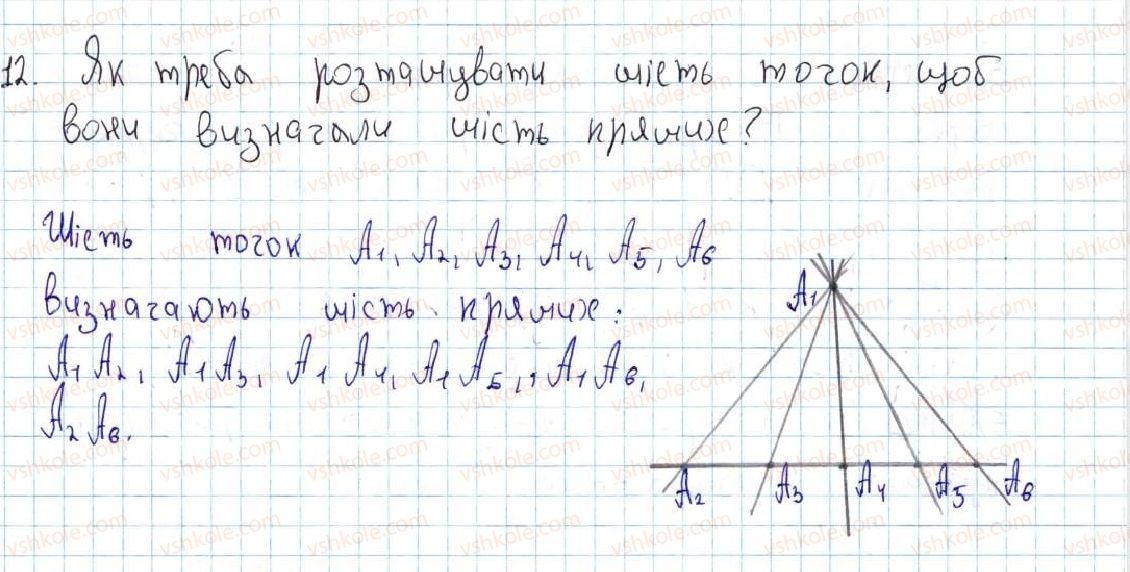 12. Як треба розташувати шість точок, щоб
вони визначали шість прямих?
Шість точок A1, A2, A3, A4, A5, A6
визначають шість прямих:
A1 A2, A1 A3, A1 A4, A1 A5,, A1 A6,
A2 A6.
A1
A2 A3 A4 A5 A6
vshkole.com